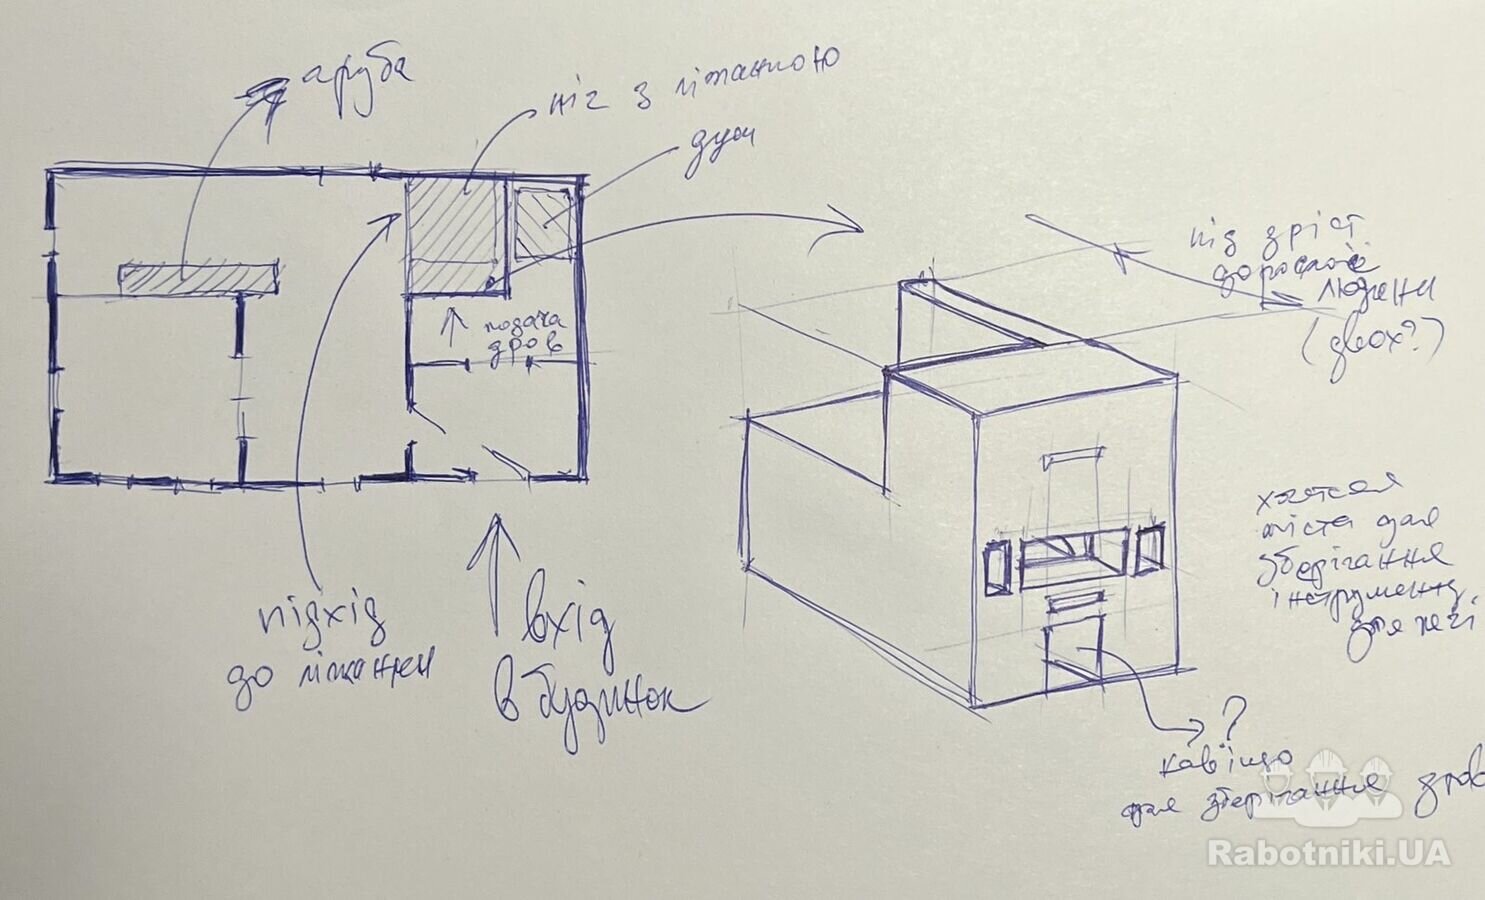 груба
піч з лежанкою
душ
під зріст
дорослої
людини
(двох?)
подача
дров
хочеться
міста для
зберігання
інструменту
для печі
підхід
до лежанки
вхід
в будинок
?
кав'їшо
для зберігання дров
Rabotniki.UA